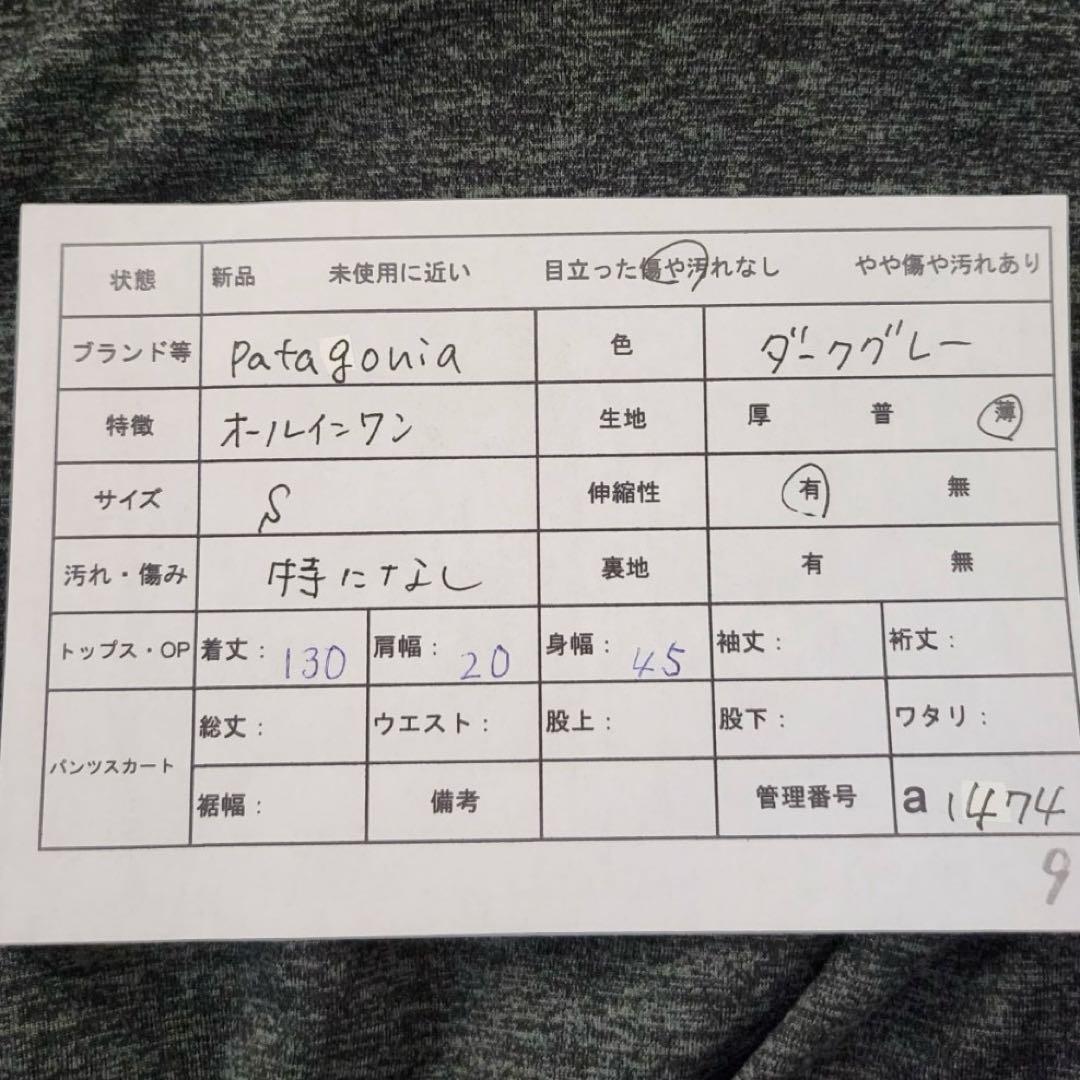 状態 新品 未使用に近い 目立った傷や汚れなし やや傷や汚れあり
ブランド等 patagonia 色 ダークグレー
特徴 オールインワン 生地 厚 普 薄
サイズ S 伸縮性 有 無
汚れ・傷み 特になし 裏地 有 無
トップス・OP 着丈: 130 肩幅: 20 身幅: 45 袖丈: 裄丈:
パンツスカート 総丈: ウエスト: 股上: 股下: ワタリ:
裾幅: 備考 管理番号 a 1474
9